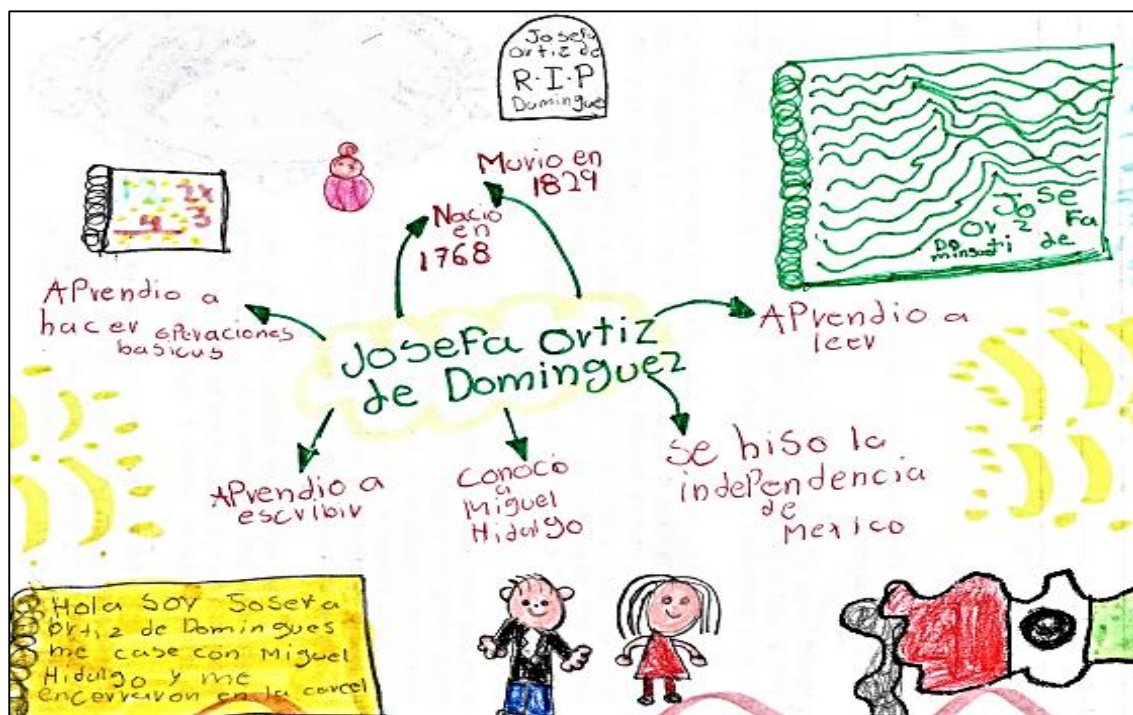 Josefa
Ortiz de
R.I.P
Dominguez
Murio en
1829
Nacio
en
1768
2x
3
4
Josefa
Ortiz
de
Dominguez
APrendio a
hacer operaciones
basicas
JoseFa Ortiz
de Dominguez
APrendio a
leer
APrendio a
escribir
Conocio
a
Miguel
Hidalgo
Se hiso la
indePendencia
de
Mexico
Hola Soy Josefa
Ortiz de Domingues
me case con Miguel
Hidalgo y me
encerraron en la carcel